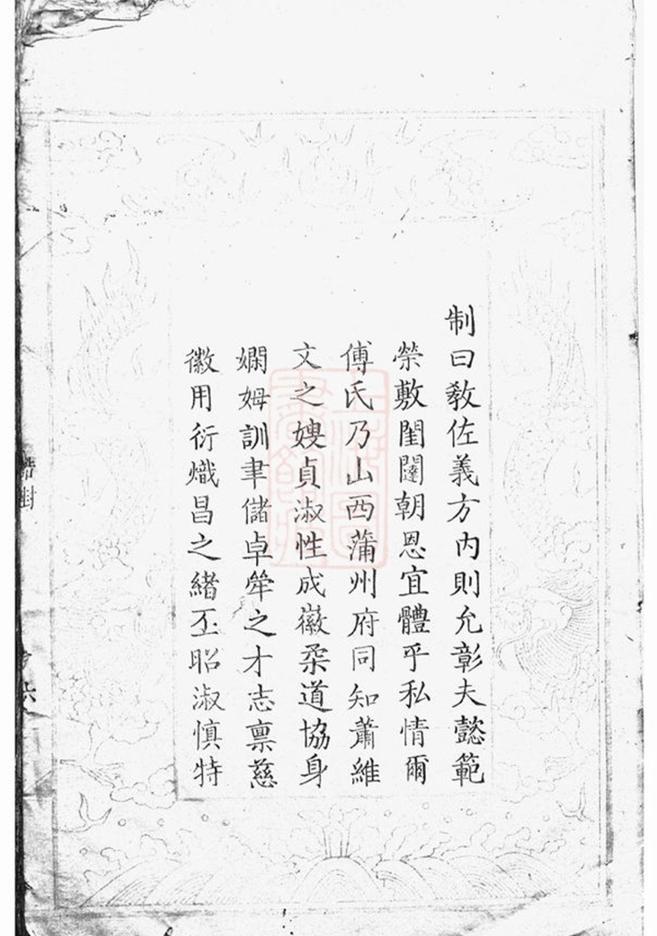 制曰敎佐義方內則允彰夫懿範
榮敷閨闥朝恩宜體乎私情爾
傅氏乃山西蒲州府同知蕭維
文之嫂貞淑性成徽柔道協身
嫻姆訓聿儲卓犖之才志禀慈
徽用衍熾昌之緒丕昭淑慎特
誥封